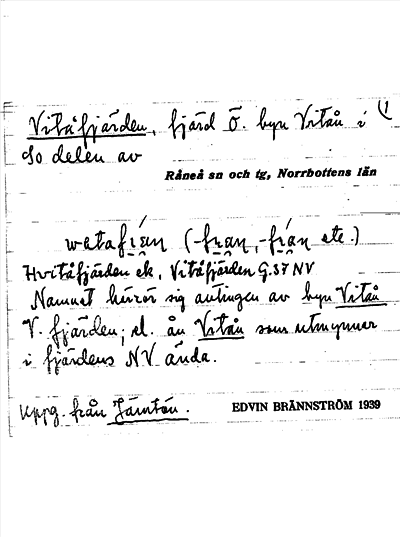 Vitåfjärden, fjärd Ö. byn Vitån i
So delen av
Råneå sn och tg, Norrbottens län
watafrían (-fran, -frían etc.)
Hvitåfjärden ek, Vitåfjärden G.37 NV
Namnet hänför sig antingen av byn Vitån
V. fjärden; el. ån Vitån som utmynnar
i fjärdens NV ända.
Uppg. från Jämtön.
EDVIN BRÄNNSTRÖM 1939